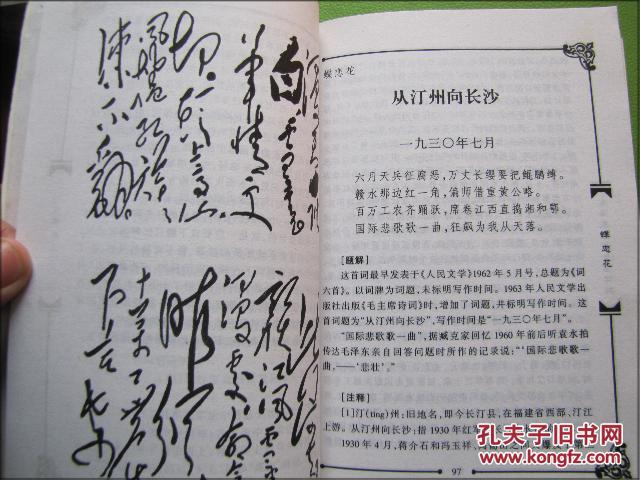 军情更
头上高山
风卷红旗
冻不翻
赣江风雪
十万工农
下吉安
蝶恋花
从汀州向长沙
一九三〇年七月
六月天兵征腐恶，万丈长缨要把鲲鹏缚。
赣水那边红一角，偏师借重黄公略。
百万工农齐踊跃，席卷江西直捣湘和鄂。
国际悲歌歌一曲，狂飙为我从天落。
[题解]
这首词最早发表于《人民文学》1962年5月号，总题为《词
六首》。以词牌为词题，未标明写作时间。1963年人民文学出
版社出版《毛主席诗词》时，增加了词题，并标明写作时间。这
首词题为“从汀州向长沙”，写作时间是“一九三〇年七月”。
“国际悲歌歌一曲”，据臧克家回忆1960年前后听袁水拍
传达毛泽东亲自回答问题时所作的记录说：“‘国际悲歌歌一
曲，——‘悲壮’。”
[注释]
[1]汀(tīng)州：旧地名，即今长汀县，在福建省西部、汀江
上游。从汀州向长沙：指1930年红军
1930年4月，蒋介石和冯玉祥、
97
蝶恋花
孔夫子旧书网
www.kongfz.com